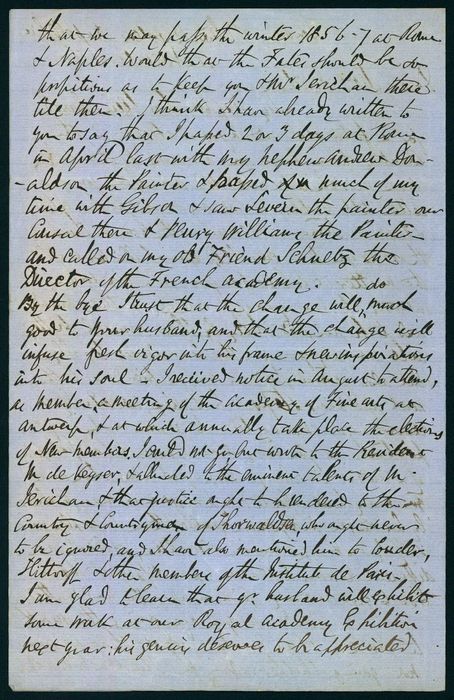 that we may pass the winter 1856-7 at Rome
& Naples. Would that the Fates should be so
propitious as to keep you & Mr Jerichau there
till then. I think I have already written to
you to say that I passed 2 or 3 days at Rome
in April last with my nephew Andrew Don-
-aldson the Painter & passed much of my
time with Gibson & saw Severn the painter our
Consul there & Penry Williams the Painter
and called on my old Friend Schnetz the
Director of the French Academy.
By the bye I trust that the change will do much
good to your husband, and that the change will
infuse fresh vigor into his frame & new inspirations
into his soul - I received notice in August to attend,
as member, a meeting of the academy of Fine arts at
Antwerp, & at which annually take place the elections
of New members, I could not go but wrote to the President
M. de Keyser, & alluded to the eminent talents of M.
Jerichau & that justice ought to be rendered to the
Country & Countrymen of Thorwaldsen, who ought never
to be ignored, and I have also mentioned him to Couder,
Hittorff & other members of the Institute de Paris.
I am glad to learn that yr husband will exhibit
some work at our Royal Academy Exhibition
next year: his genius deserves to be appreciated